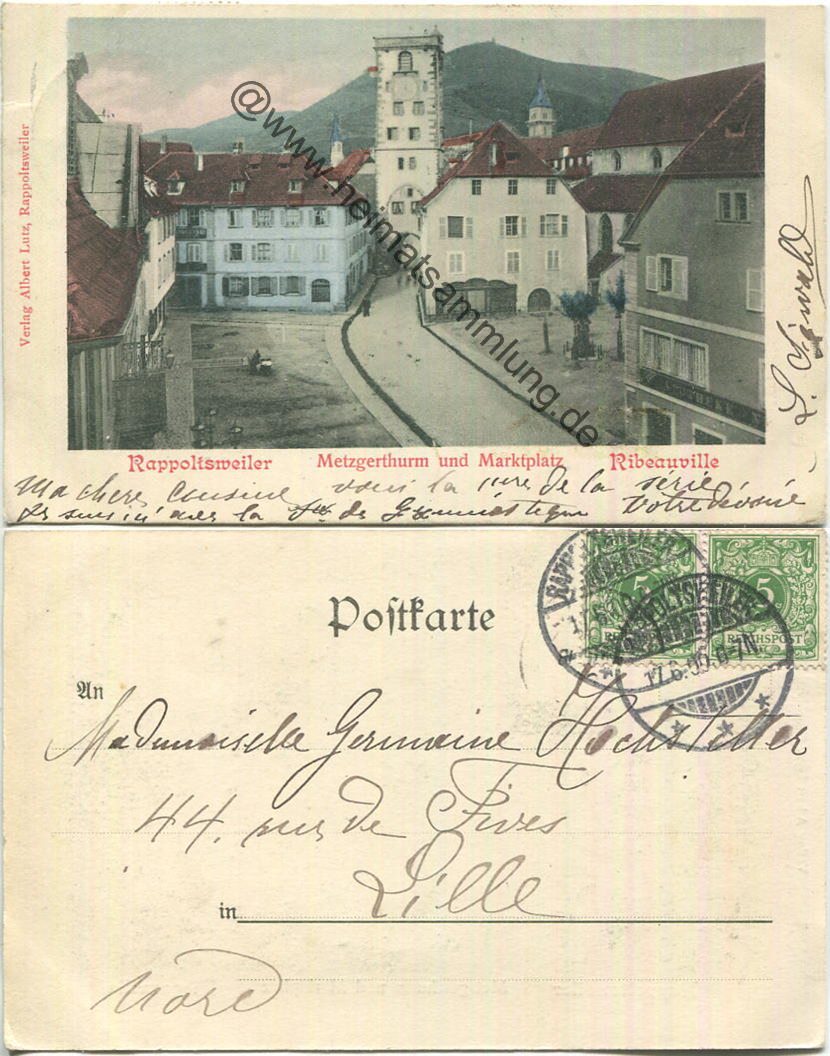 Verlag Albert Lutz, Rappoltsweiler
@www.heimatsammlung.de
APOTHEKE
Rappoltsweiler Metzgerthurm und Marktplatz Ribeauville
Ma chere cousine voici la 1ere de la série
Je suis ici avec la de Gymnastique Votre dévoué
L.
Postkarte
RAPPOLTSWEILER
5 5
REICHSPOST
17.6.00.6-7N.
An
Mademoiselle Germaine Hochstetter
44, rue de Fives
in Lille
Nord